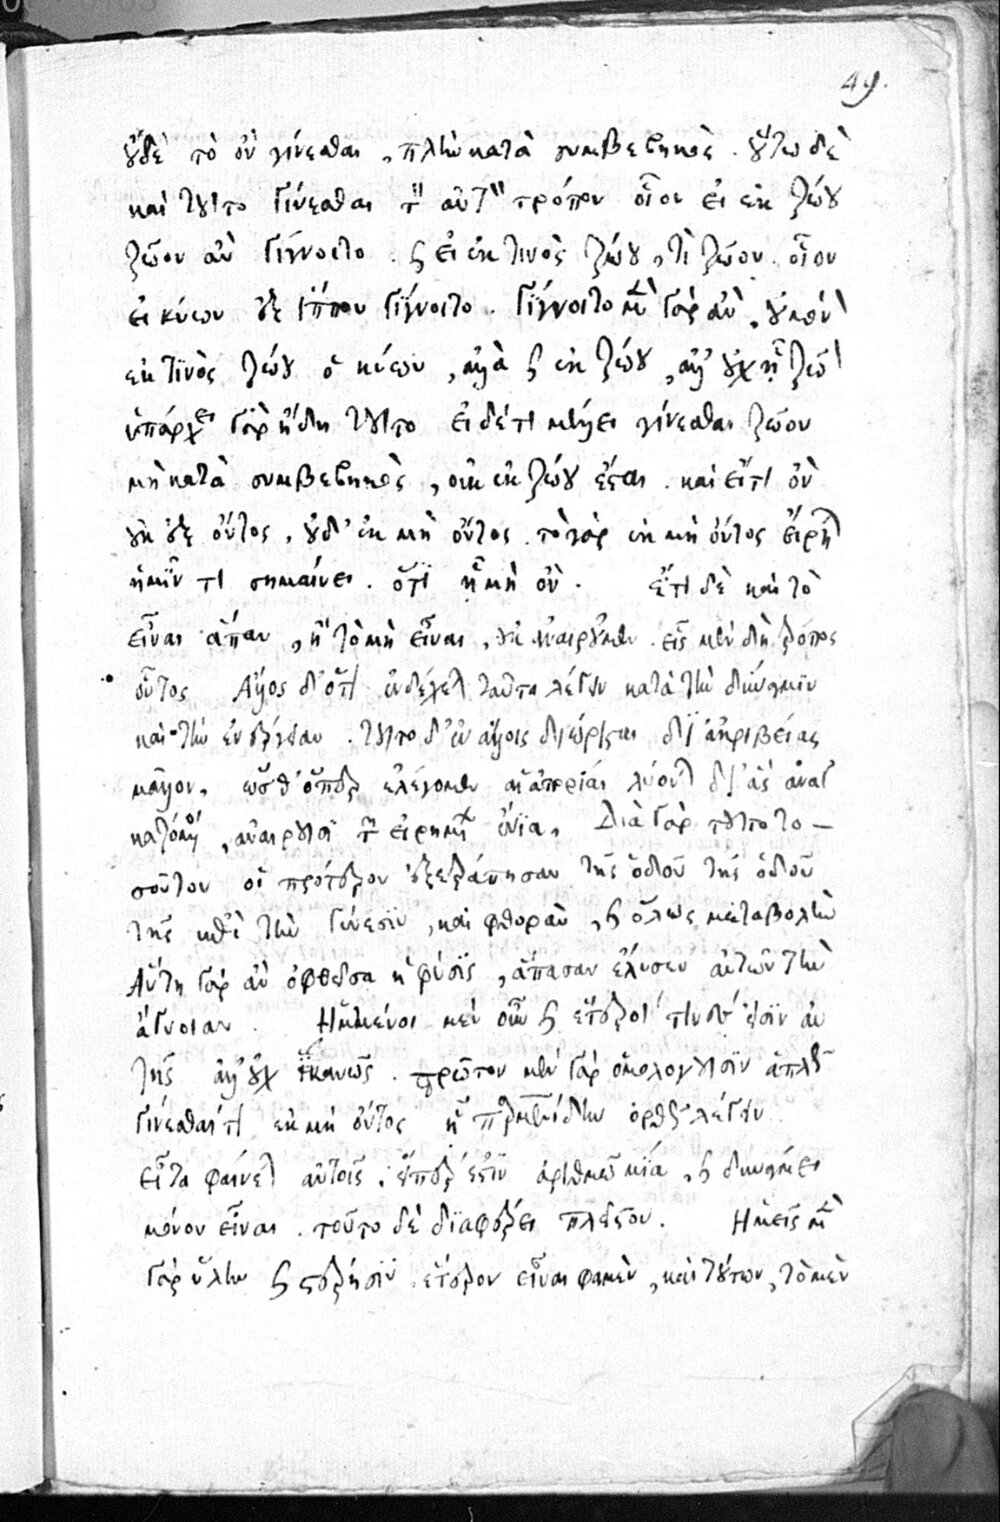 49.
οὐδὲ τὸ ὂν γίνεσθαι, πλὴν κατὰ συμβεβηκός. οὕτω δὲ
καὶ τοῦτο γίνεσθαι τὸν αὐτὸν τρόπον οἷον εἰ ἐκ ζώου
ζῶον ἂν γίγνοιτο. καὶ εἰ ἐκ τινὸς ζώου, τὶ ζῶον. οἷον
εἰ κύων ἐξ ἵππου γίγνοιτο. γίγνοιτο μὲν γὰρ ἂν, οὐ μόνον
ἐκ τινὸς ζώου ὁ κύων, ἀλλὰ καὶ ἐκ ζώου, ἀλλ' οὐχ ᾗ ζῶον
ὑπάρχει γὰρ ἤδη τοῦτο εἰ δέ τι μέλλει γίνεσθαι ζῶον
μὴ κατὰ συμβεβηκὸς, οὐκ ἐκ ζώου ἔσται. καὶ εἴ τι ὂν
οὐκ ἐξ ὄντος, οὐδ' ἐκ μὴ ὄντος. τὸ γὰρ ἐκ μὴ ὄντος εἴρηται
ἡμῖν τί σημαίνει. ὅτι ᾗ μὴ ὄν. ἔτι δὲ καὶ τὸ
εἶναι ἅπαν, ἢ τὸ μὴ εἶναι, οὐκ ἀναιροῦμεν. εἷς μὲν δὴ τρόπος
οὗτος Ἄλλος δ' ὅτι ἐνδέχεται ταῦτα λέγειν κατὰ τὴν δύναμιν
καὶ τὴν ἐνέργειαν. τοῦτο δ' ἐν ἄλλοις διώρισται δι' ἀκριβείας
μᾶλλον, ὥσθ' ὅπερ ἐλέγομεν αἱ ἀπορίαι λύονται δι' ἃς ἀναγ
καζόμενοι, ἀναιροῦσι τῶν εἰρημένων ἔνια, Διὰ γὰρ τοῦτο το-
σοῦτον οἱ πρότερον ἐξετράπησαν τῆς ὁδοῦ τῆς ὁδοῦ
τῆς ἐπὶ τὴν γένεσιν, καὶ φθορὰν, καὶ ὅλως μεταβολὴν
Αὕτη γὰρ ἂν ὀφθεῖσα ἡ φύσις, ἅπασαν ἔλυσεν αὐτῶν τὴν
ἄγνοιαν. Ἡμμένοι μὲν οὖν καὶ ἕτεροί τινές εἰσιν αὐ
τῆς ἀλλ' οὐχ ἱκανῶς. πρῶτον μὲν γὰρ ὁμολογοῦσιν ἁπλῶς
γίνεσθαί τι ἐκ μὴ ὄντος ᾗ παρμενίδην ὀρθῶς λέγειν.
εἶτα φαίνεται αὐτοῖς, εἴπερ ἐστὶν ἀριθμῷ μία, καὶ δυνάμει
μόνον εἶναι. τοῦτο δὲ διαφέρει πλεῖστον. Ἡμεῖς μὲν
γὰρ ὕλην καὶ στέρησιν ἕτερον εἶναι φαμὲν, καὶ τούτων, τὸ μὲν